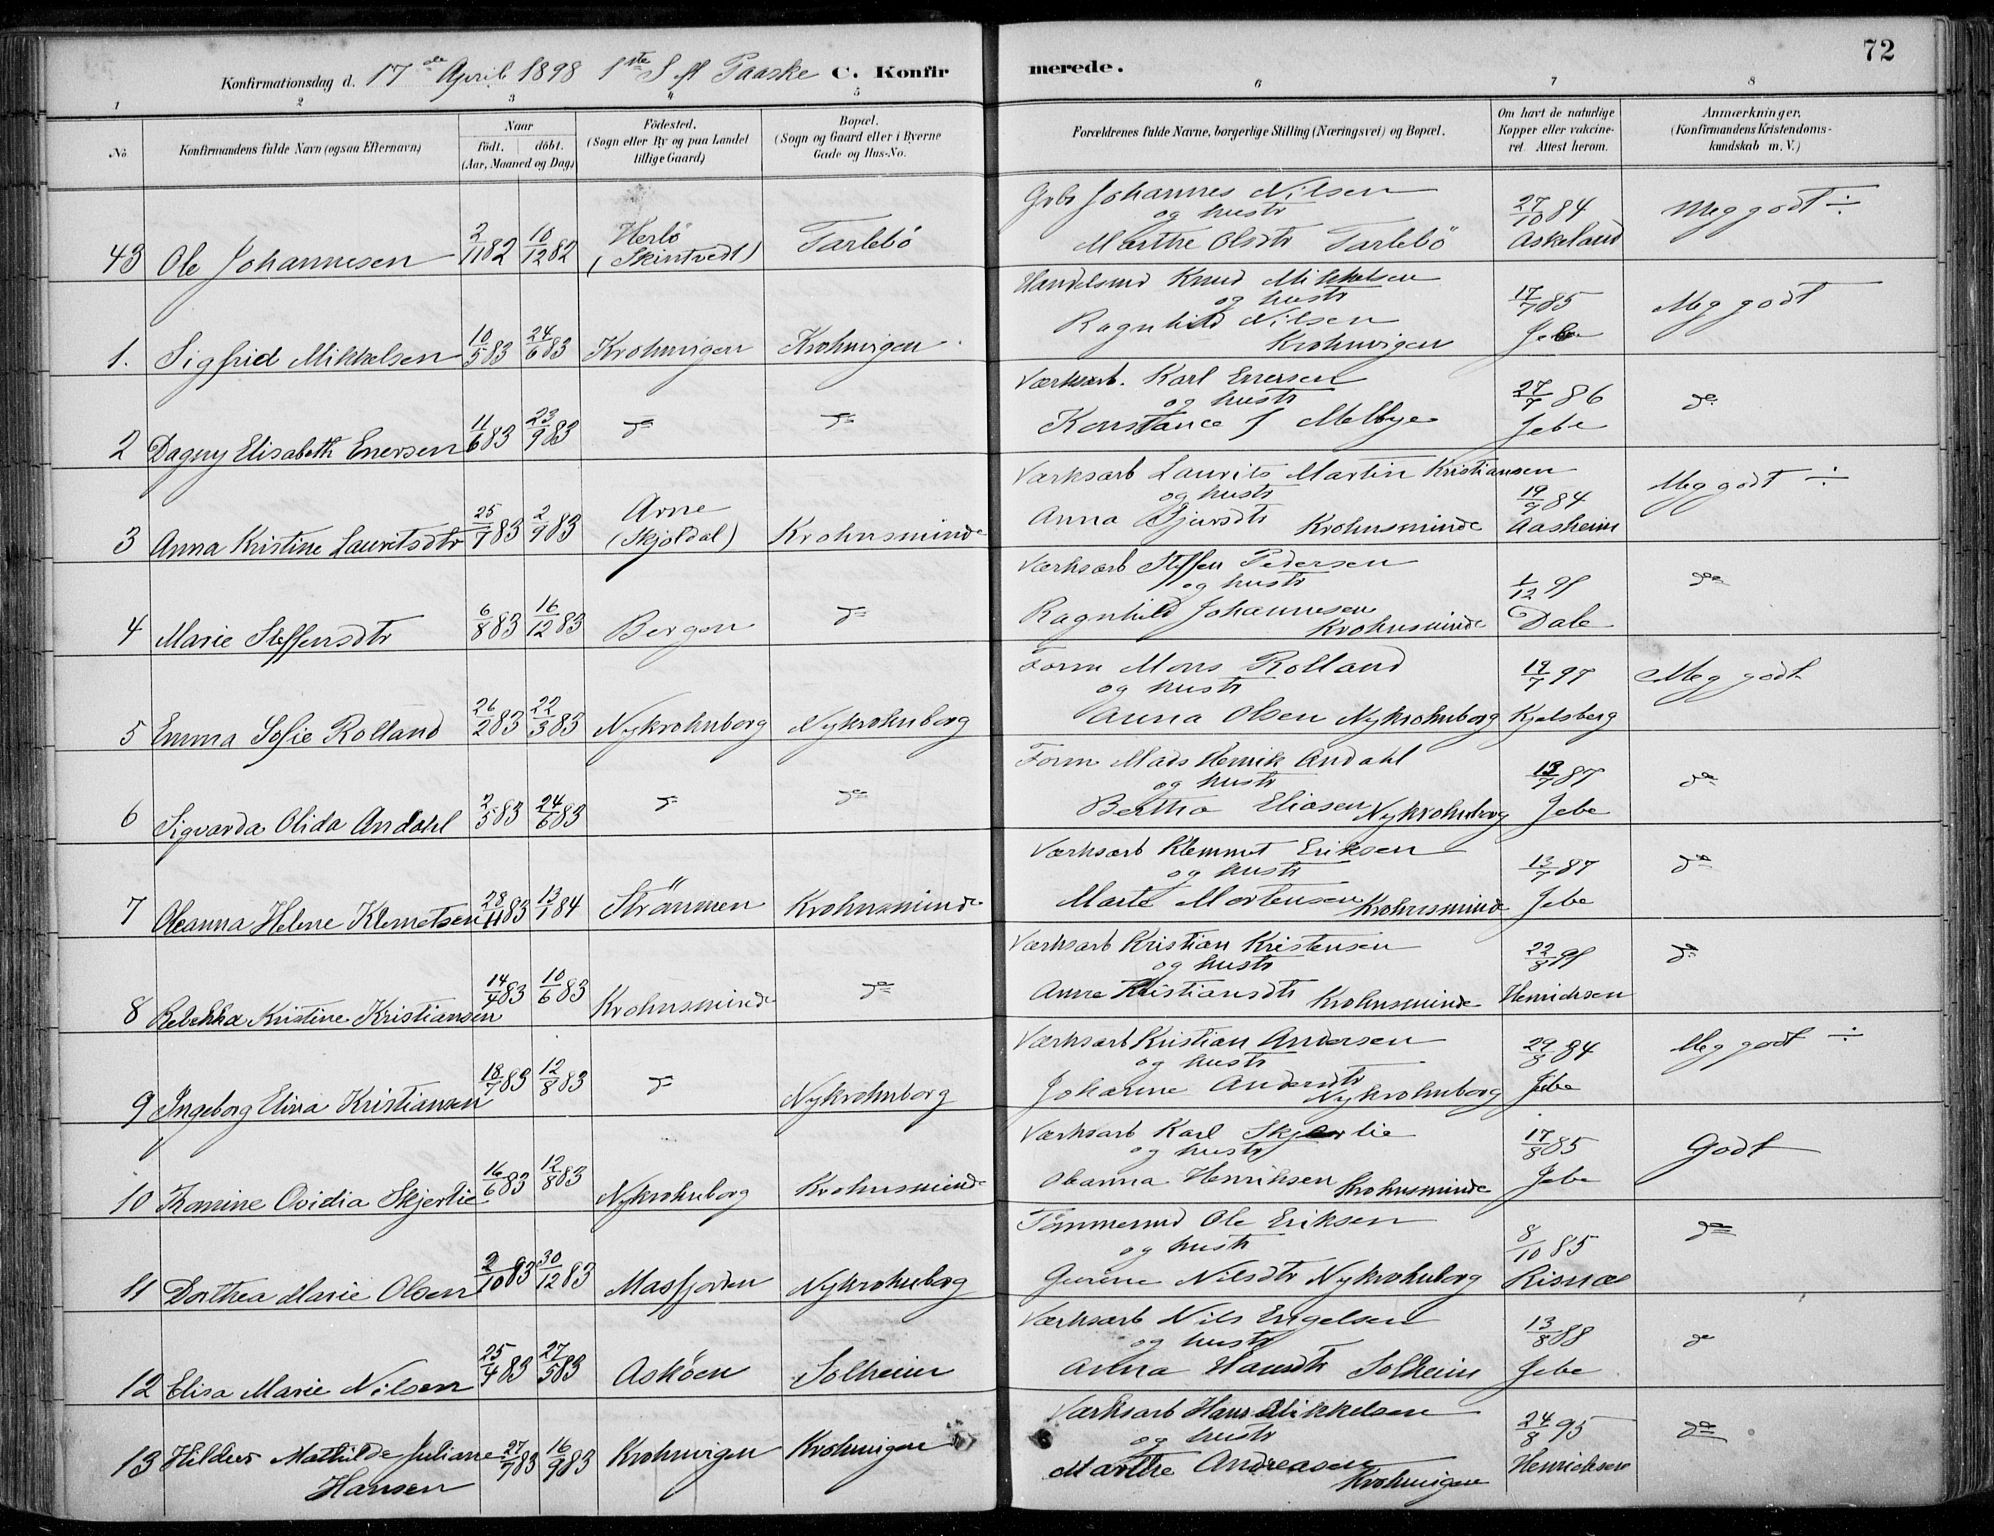 72
Konfirmationsdag d. 17de April 1898 1ste S. ef Paaske C. Konfirmerede.
1 2 3 4 5 6 7 8
No
Konfirmandens fulde Navn (ogsaa Efternavn)
Naar
födt. döbt.
(Aar, Maaned og Dag)
Födested.
(Sogn eller By og paa Landet
tillige Gaard)
Bopæl.
(Sogn og Gaard eller i Byerne
Gade og Hus-No.
Forældrenes fulde Navne, borgerlige Stilling (Næringsvei) og Bopæl.
Om havt de naturlige
Kopper eller vakcine-
ret. Attest herom.
Anmærkninger.
(Konfirmandens Kristendoms-
kundskab m. V.)
43 Ole Johannesen 2/11 82 10/12 82 Herlö (Skintvedt) Tarlebö
Gbr Johannes Nilsen
og hustr
Marthe Olsdtr Tarlebö
27/10 84 Askeland
Meg godt ÷
1. Sigfrid Mikkelsen 10/5 83 24/6 83 Krohnvigen Krohnvigen
Handelsmd Knud Mikkelsen
og hustr
Ragnhild Nilsen
Krohnvigen
17/7 85 Jebe
Meg godt
2 Dagny Elisabeth Enersen 11/6 83 23/9 83 do do
Værksarb. Karl Enersen
og hustr
Konstance J Melbye
27/7 86 Jebe
do
3 Anna Kristine Lauritsdtr 25/7 83 2/9 83 Arne (Skjoldal) Krohnsminde
Værksarb Laurits Martin Kristiansen
og hustr
Anna Bjarsdtr Krohnsminde
19/9 84 Aasheim
Meg godt ÷
4 Marie Steffensdtr 6/8 83 16/12 83 Bergen do
Værksarb Steffen Pedersen
og hustr
Ragnhild Johannesen
Krohnsminde
1/12 91 Dale
do
5 Emma Sofie Rolland 26/2 83 22/3 83 Nykrohnborg Nykrohnborg
Form Mons Rolland
og hustr
Anna Olsen Nykrohnborg
19/7 97 Kjelsberg
Meg godt
6 Sigvarda Olida Andahl 2/5 83 24/6 83 do do
Form Mads Henrik Andahl
og hustr
Bertha Eliasen Nykrohnborg
13/7 87 Jebe
do
7 Oleanna Helene Klemetsen 28/11 83 13/1 84 Strömmen Krohnsminde
Værksarb Klemmet Eriksen
og hustr
Marte Mortensen Krohnsminde
13/7 87 Jebe
do
8 Rebekka Kristine Kristiansen 14/4 83 10/6 83 Krohnsminde do
Værksarb Kristian Kristensen
og hustr
Anne Kristiansdtr Krohnsminde
22/8 91 Henriksen
do
9 Ingeborg Elina Kristiansen 18/7 83 12/8 83 do Nykrohnborg
Værksarb Kristian Andersen
og hustr
Johanne Andersdtr
Nykrohnborg
29/8 84 Jebe
Meg godt ÷
10 Thomine Ovidia Skjerlie 16/6 83 12/8 83 Nykrohnborg Krohnsminde
Værksarb Karl Skjerlie
og hustr
Oleanna Henriksen Krohnsminde
17/8 85 Jebe
Godt
11 Dorthea Marie Olsen 2/10 83 30/12 83 Masfjorden Nykrohnborg
Tömmermd Ole Eriksen
og hustr
Gurine Nilsdtr Nykrohnborg
8/10 85 Risnæs
do
12 Elisa Marie Nilsen 25/4 83 27/5 83 Asköen Solheim
Værksarb Nils Engelsen
og hustr
Anna Hansdtr Solheim
13/8 88 Jebe
do
13 Hildur Mathilde Juliane Hansen 27/7 83 16/9 83 Krohnvigen Krohnvigen
Værksarb Hans Mikkelsen
og hustr
Marthe Andreasen
Krohnvigen
24/8 95 Henriksen
do